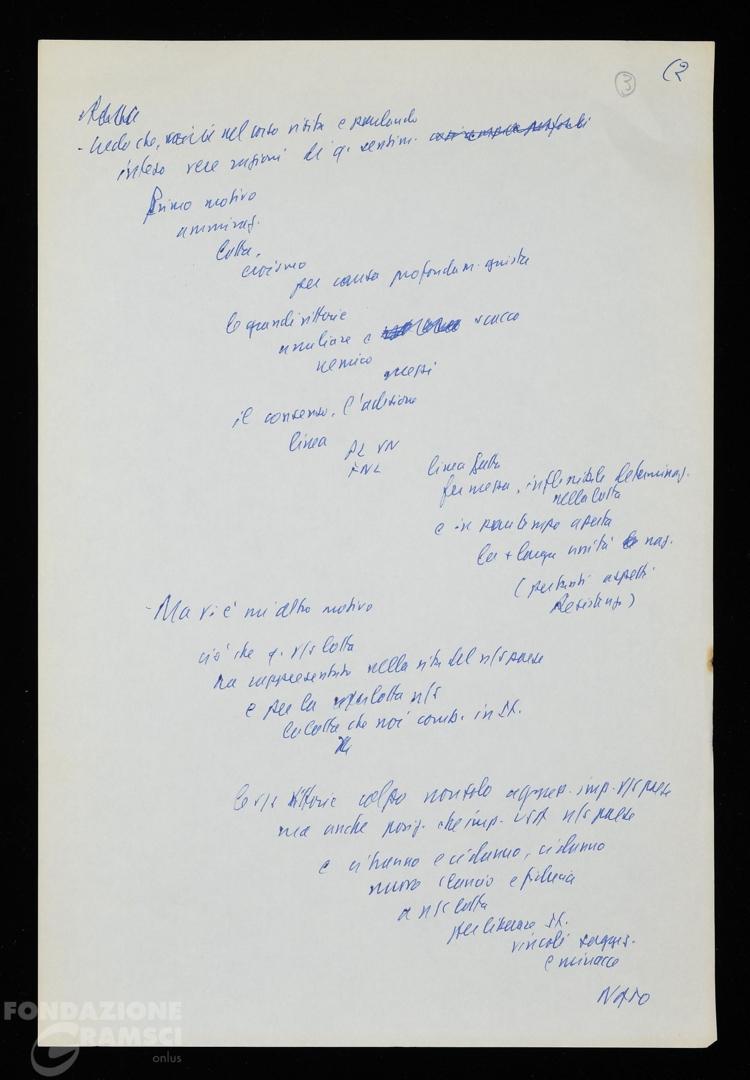 (2
3
- Credo che, nel corso visita e parlando
inteso vere ragioni di q. sentim.
Primo motivo
ammiraz.
lotta,
eroismo
per causa profondam. giusta
le grandi vittorie
e scacco
nemico
questi
il consenso, l'adesione
linea PL VN
FNL
linea giusta
fermezza, inflessibile determinaz.
nella lotta
e in pari tempo aperta
la + larga unità naz.
(per tanti aspetti
Resistenza)
- Ma vi è un altro motivo
ciò che q. v/s lotta
ha rappresentato nella vita del n/s paese
e per la lotta n/s
la lotta che noi comb. in It.
le v/s vittorie colpo non solo aggress. imp. v/s paese
ma anche posiz. che imp. USA n/s paese
e ci hanno e ci danno, ci danno
nuovo slancio e fiducia
a n/s lotta
per liberare It.
vincoli
e minacce
NATO
FONDAZIONE
GRAMSCI
onlus